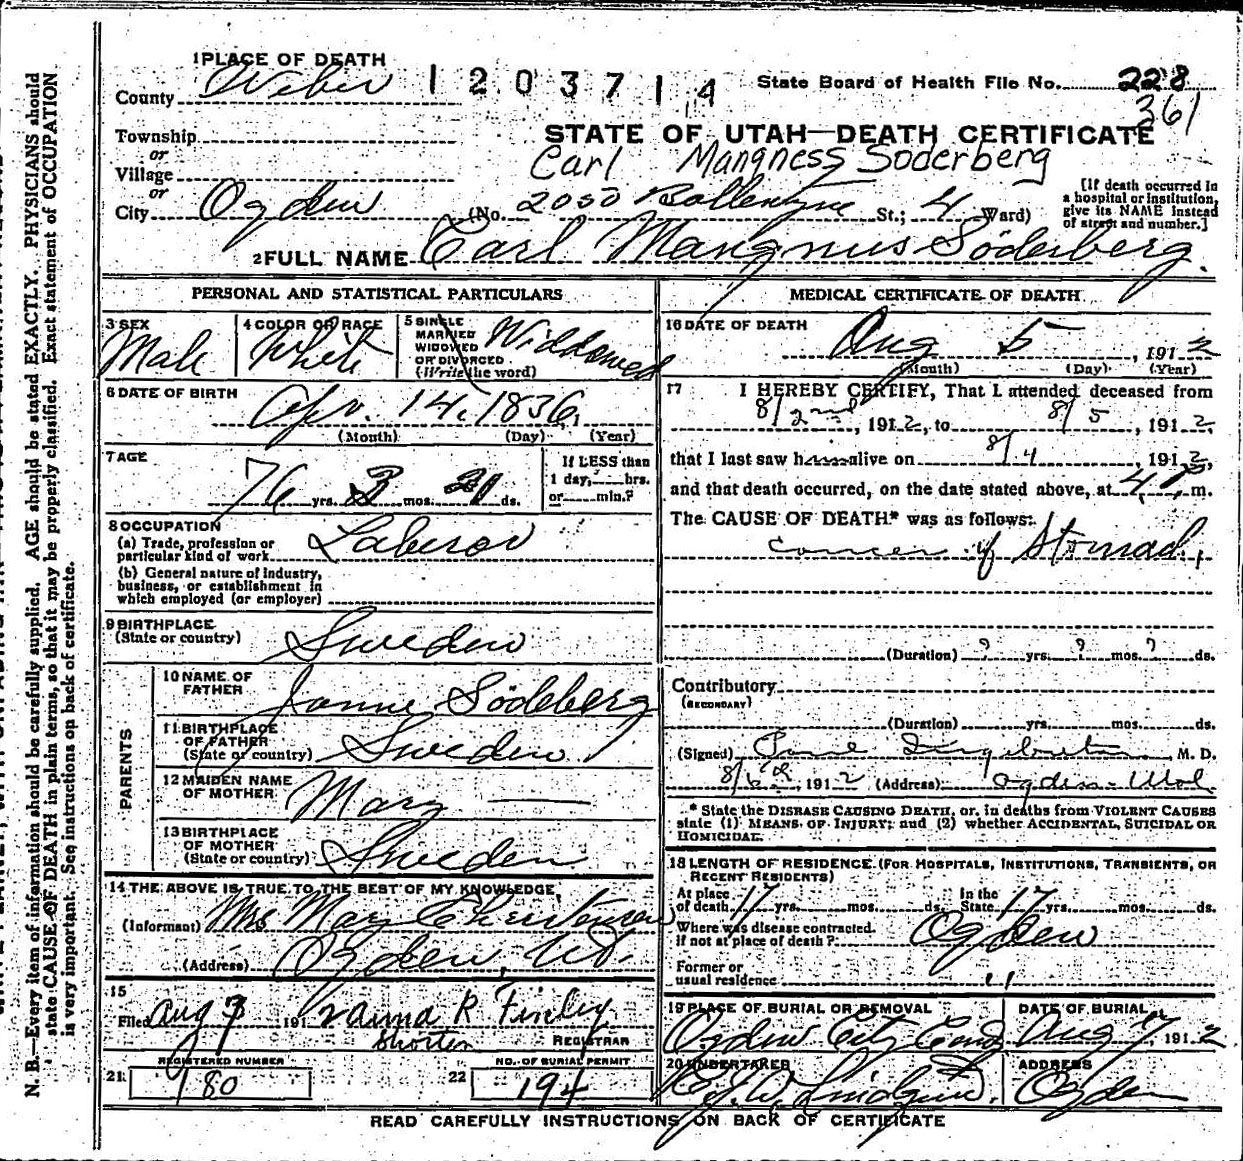 1 PLACE OF DEATH
County Weber
1203714
State Board of Health File No. 228
361
Township
or
Village
or
City Ogden
STATE OF UTAH—DEATH CERTIFICATE
Carl Mangness Soderberg
(No. 2050 Ballentyne St.; 4 Ward)
[If death occurred in
a hospital or institution,
give its NAME instead
of street and number.]
2 FULL NAME Carl Mangnus Söderberg.
PERSONAL AND STATISTICAL PARTICULARS
3 SEX
Male
4 COLOR OR RACE
White
5 SINGLE
MARRIED
WIDOWED
OR DIVORCED
(Write the word)
Widdowed
6 DATE OF BIRTH
Apr. 14, 1836,
(Month) (Day) (Year)
7 AGE
76 yrs. 3 mos. 21 ds.
If LESS than
1 day, hrs.
or min.?
8 OCCUPATION
(a) Trade, profession or
particular kind of work Laberor
(b) General nature of industry,
business, or establishment in
which employed (or employer)
9 BIRTHPLACE
(State or country) Sweden
PARENTS
10 NAME OF
FATHER Södeberg
11 BIRTHPLACE
OF FATHER
(State or country) Sweden
12 MAIDEN NAME
OF MOTHER Mary —
13 BIRTHPLACE
OF MOTHER
(State or country) Sweden
14 THE ABOVE IS TRUE TO THE BEST OF MY KNOWLEDGE
(Informant) Mrs Mary Christensen
(Address) Ogden, Ut.
15
Filed Aug 7 191 R Finley
REGISTRAR
REGISTERED NUMBER
21 180
NO. OF BURIAL PERMIT
22 194
MEDICAL CERTIFICATE OF DEATH
16 DATE OF DEATH
Aug 5, 1912
(Month) (Day) (Year)
17 I HEREBY CERTIFY, That I attended deceased from
8/2nd, 1912, to 8/5, 1912,
that I last saw h alive on 8/4, 1912,
and that death occurred, on the date stated above, at m.
The CAUSE OF DEATH* was as follows:
cancer of Stomach,
(Duration) ? yrs. ? mos. ? ds.
Contributory
(SECONDARY)
(Duration) yrs. mos. ds.
(Signed) M. D.
1912 (Address) Ogden
* State the DISEASE CAUSING DEATH, or, in deaths from VIOLENT CAUSES
state (1) MEANS OF INJURY; and (2) whether ACCIDENTAL, SUICIDAL OR
HOMICIDAL.
18 LENGTH OF RESIDENCE (FOR HOSPITALS, INSTITUTIONS, TRANSIENTS, OR
RECENT RESIDENTS)
At place
of death 17 yrs. mos. ds.
In the
State 17 yrs. mos. ds.
Where was disease contracted.
if not at place of death? Ogden
Former or
usual residence "
19 PLACE OF BURIAL OR REMOVAL
Ogden City Cem
DATE OF BURIAL
Aug 7, 1912
20 UNDERTAKER
ADDRESS
Ogden
READ CAREFULLY INSTRUCTIONS ON BACK OF CERTIFICATE
N. B.—Every item of information should be carefully supplied. AGE should be stated EXACTLY. PHYSICIANS should
state CAUSE OF DEATH in plain terms, so that it may be properly classified. Exact statement of OCCUPATION
is very important. See instructions on back of certificate.